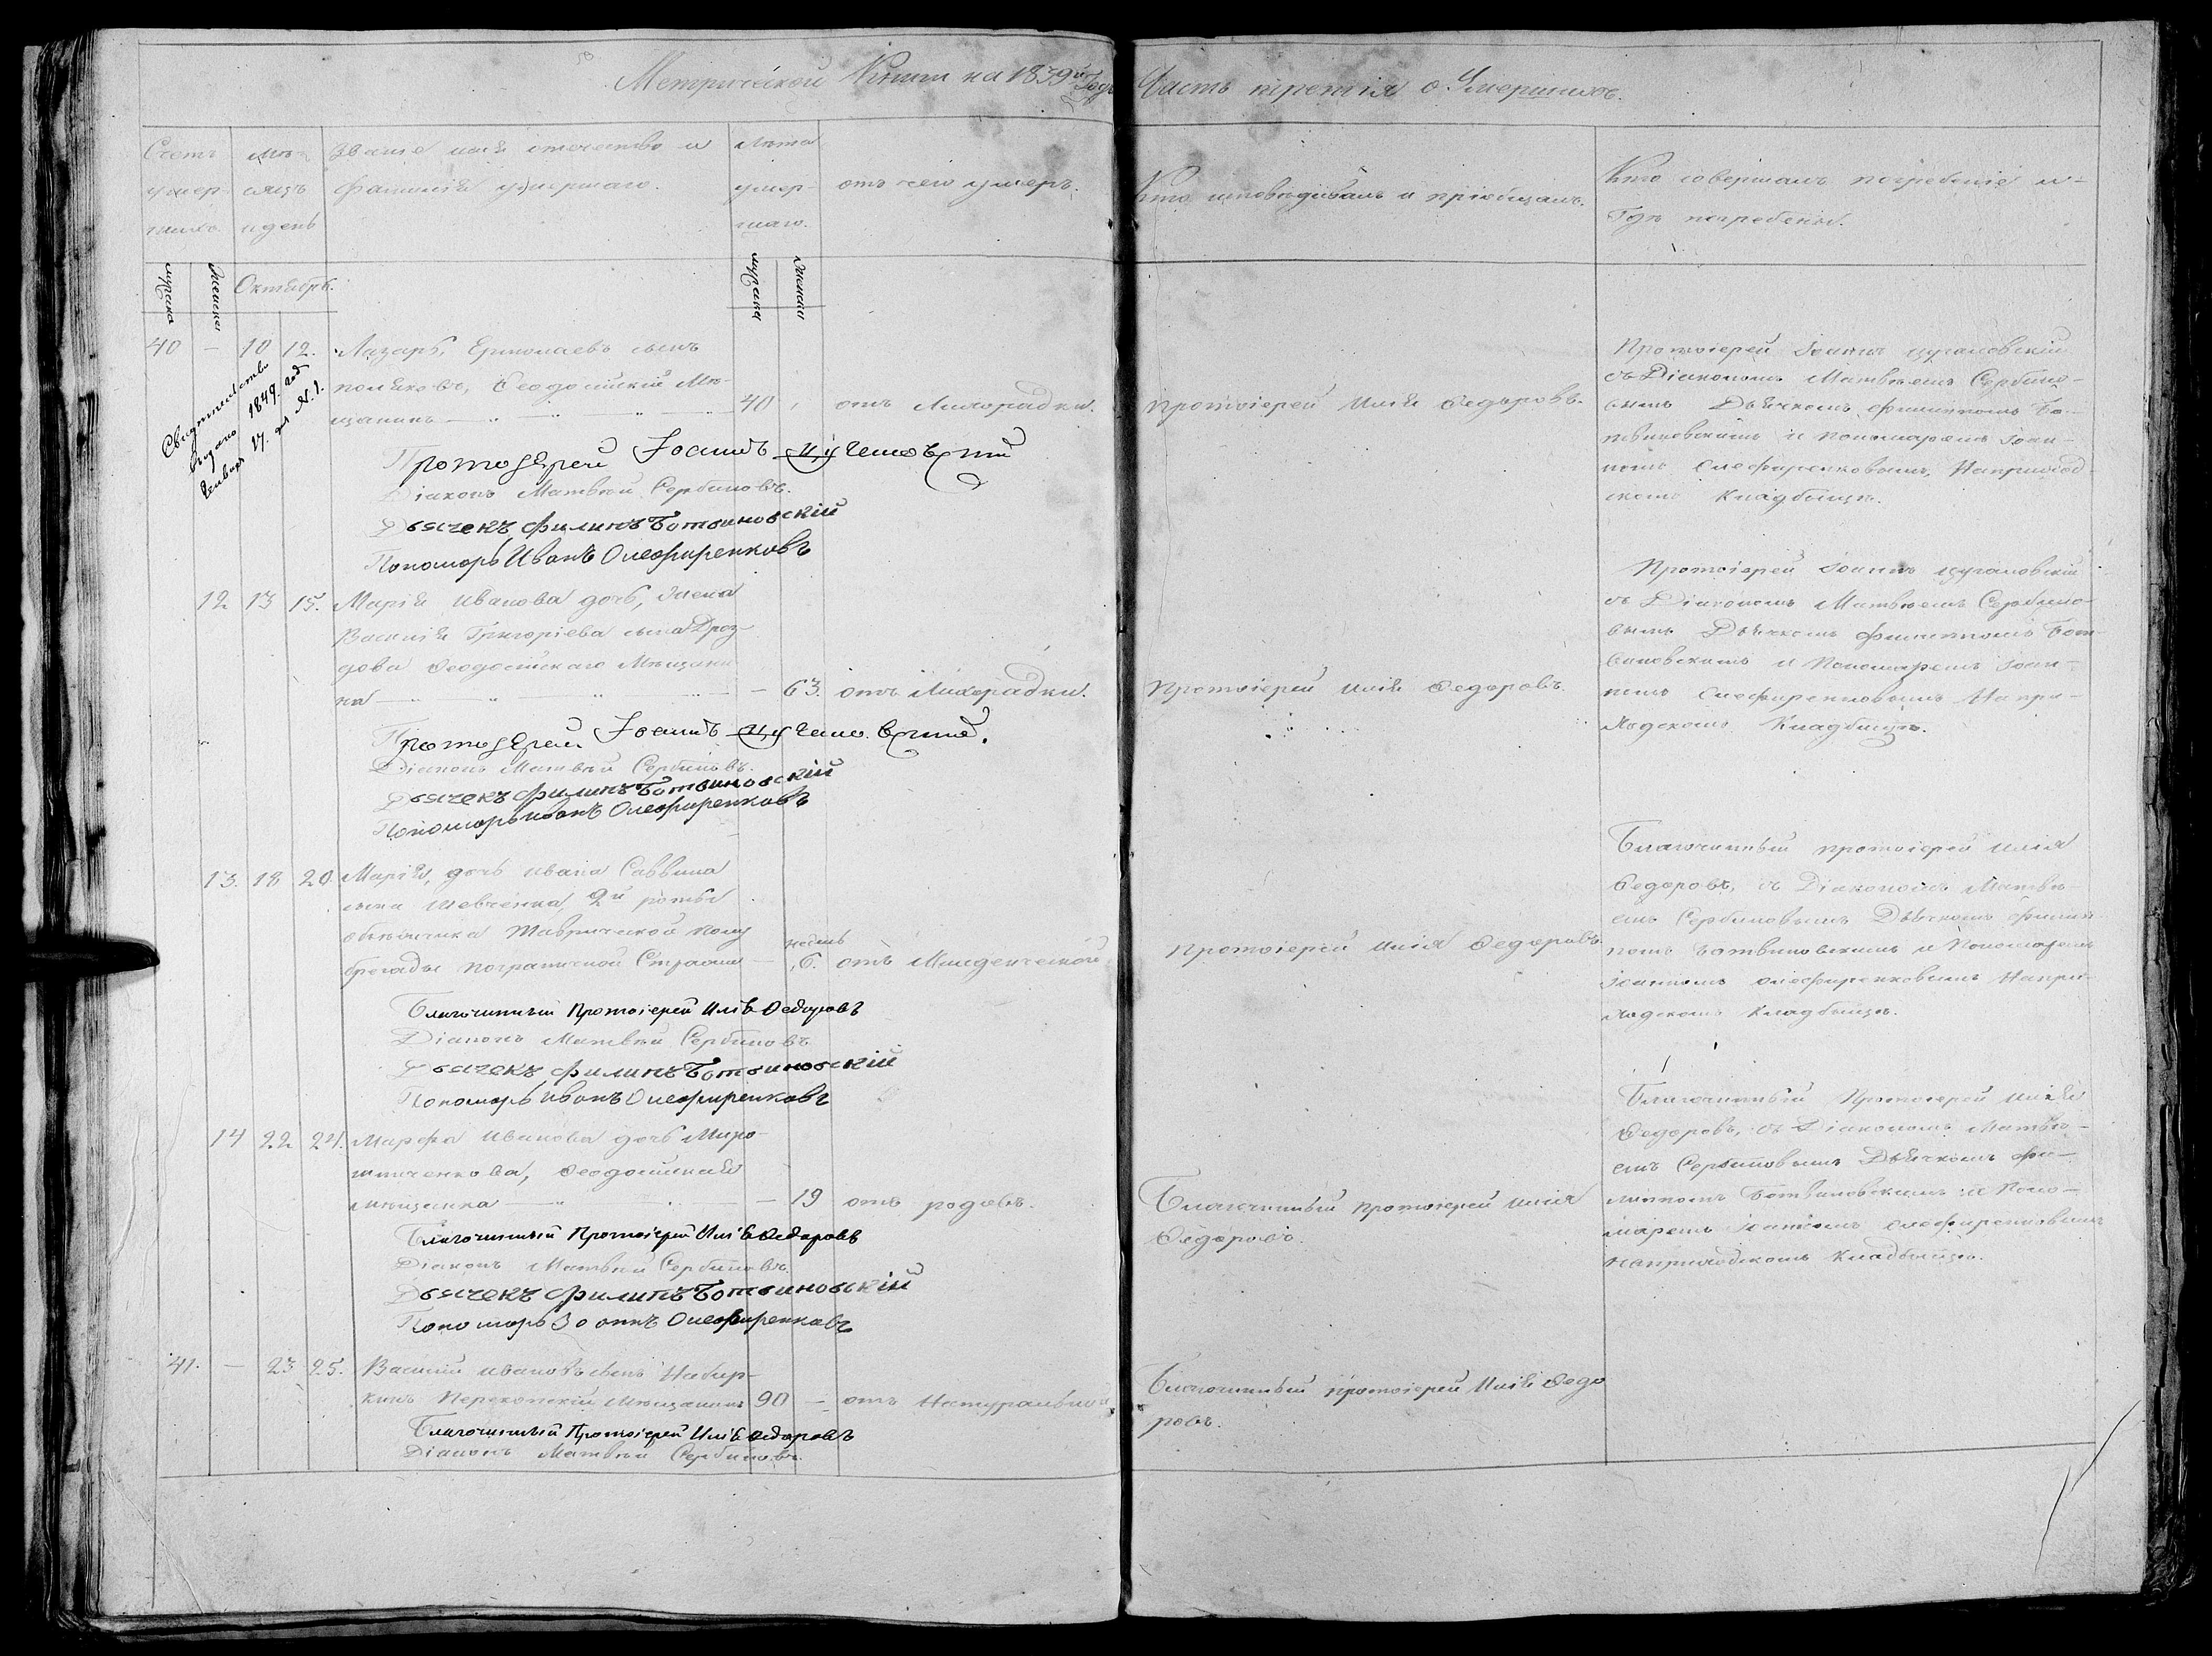 Метрической Книги на 1839й Годъ Часть третія о Умершихъ.
Счетъ умер- шихъ.
мѣ- сяцъ и день
Званіе имя отечество и
фамилія умершаго.
Лѣта умер- шаго.
отъ чего умеръ.
Кто исповѣдывалъ и пріобщалъ.
Кто совершалъ погребеніе и
Гдѣ погребены.
мужска женска Октябрь.
мужска женска
40 — 10 12. Лазарь, Ермолаевъ сынъ
поляковъ, Ѳеодосійскій Мѣ-
щанинъ — 40 отъ Лихорадки.
Свидѣтельство
выдано 1849. года
Генваря 17. дня N. 1.
Протоіерей Іоаннъ Цугановскій
Діаконъ Матвѣй Сербиновъ.
Дьячекъ Филипъ Ботвиновскій
Пономарь Иванъ Олефиренковъ
Протоіерей Илія Ѳедоровъ.
Протоіерей Іоаннъ Цугановскій
съ Діакономъ Матвѣемъ Сербино-
вымъ Дьячкомъ Филиппомъ Бо-
твиновскимъ и пономаремъ Іоан-
номъ Олефиренковымъ, Наприход-
скомъ Кладбищѣ.
12 13 15. Марія Иванова дочь, жена
Василія Григоріева сына Дроз-
дова Ѳеодосійскаго Мѣщани-
на — — 63. отъ Лихорадки.
Протоіерей Іоаннъ Цугановскій.
Діаконъ Матвѣй Сербиновъ.
Дьячекъ Филипъ Ботвиновскій
Пономарь Иванъ Олефиренковъ
Протоіерей Илія Ѳедоровъ.
Протоіерей Іоаннъ Цугановскій
съ Діакономъ Матвѣемъ Сербино-
вымъ Дьячкомъ Филиппомъ Бот-
виновскимъ и Пономаремъ Іоан-
номъ Олефиренковымъ Напри-
ходскомъ Кладбищѣ.
13. 18 20. Марія, дочь Ивана Саввина
сына Шевченка, 2й роты
объѣзчика Таврической полу
бригады пограничной Стражи — недѣль 6. отъ Младенческой
Благочинный Протоіерей Илія Ѳедоровъ
Діаконъ Матвѣй Сербиновъ
Дьячекъ Филипъ Ботвиновскій
Пономарь Иванъ Олефиренковъ
Протоіерей Илія Ѳедоровъ.
Благочинный протоіерей Илія
Ѳедоровъ, съ Діакономъ Матвѣ-
емъ Сербиновымъ Дьячкомъ Филип-
помъ Ботвиновскимъ и Пономаремъ
Іоанномъ Олефиренковымъ Напри-
ходскомъ Кладбищѣ.
14 22 24. Марфа Иванова дочь Миро-
шниченкова, Ѳеодосійская
мѣщанка — — 19 отъ родовъ.
Благочинный Протоіерей Илія Ѳедоровъ
Діаконъ Матвѣй Сербиновъ.
Дьячекъ Филипъ Ботвиновскій
Пономарь Іоаннъ Олефиренковъ
Благочинный протоіерей Илія
Ѳедоровъ.
Благочинный Протоіерей Илія
Ѳедоровъ, съ Діакономъ Матвѣ-
емъ Сербиновымъ Дьячкомъ Фи-
липпомъ Ботвиновскимъ и Поно-
маремъ Іоанномъ Олефиренковымъ
наприходскомъ Кладбищѣ.
41. — 23 25. Василій Ивановъ сынъ
Перекопскій Мѣщанинъ 90 — отъ Натуральной
Благочинный Протоіерей Илія Ѳедоровъ
Діаконъ Матвѣй Сербиновъ.
Благочинный протоіерей Илія Ѳедо
ровъ.